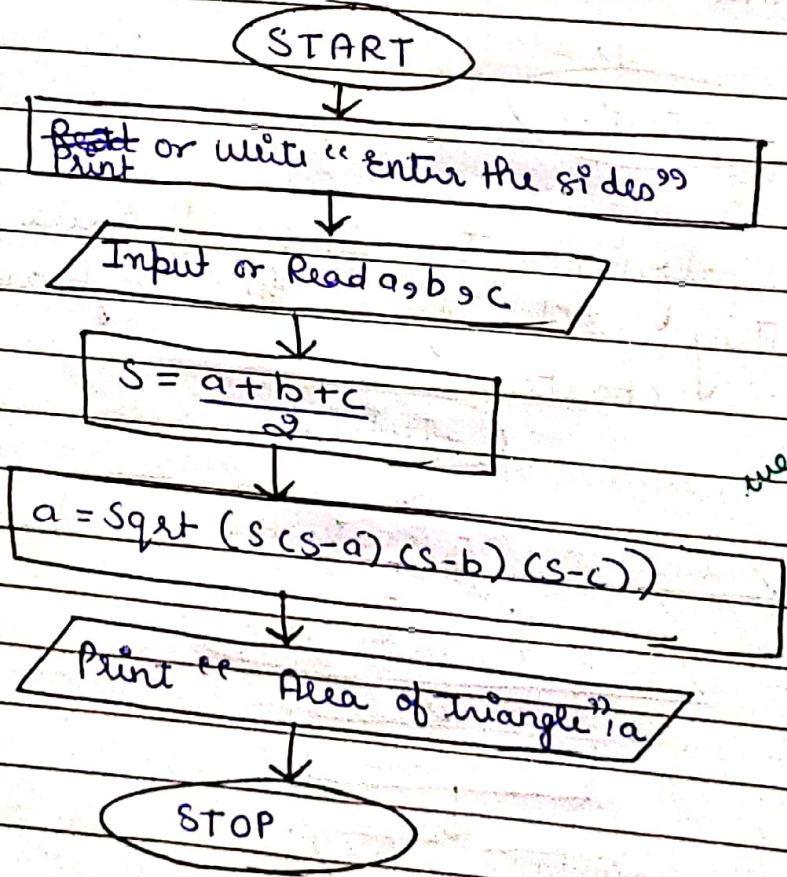 START
Print or write “Enter the sides”
Input or Read a, b, c
S = a+b+c
2
a = Sqrt (S(S-a) (S-b) (S-c))
Print “ Area of triangle”, a
STOP